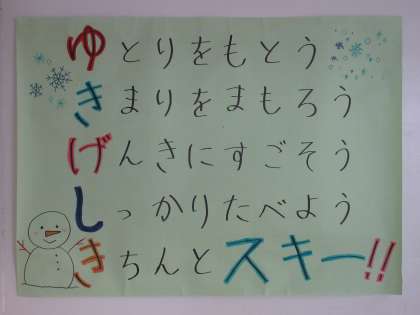 ゆとりをもとう
きまりをまもろう
げんきにすごそう
しっかりたべよう
きちんとスキー!!